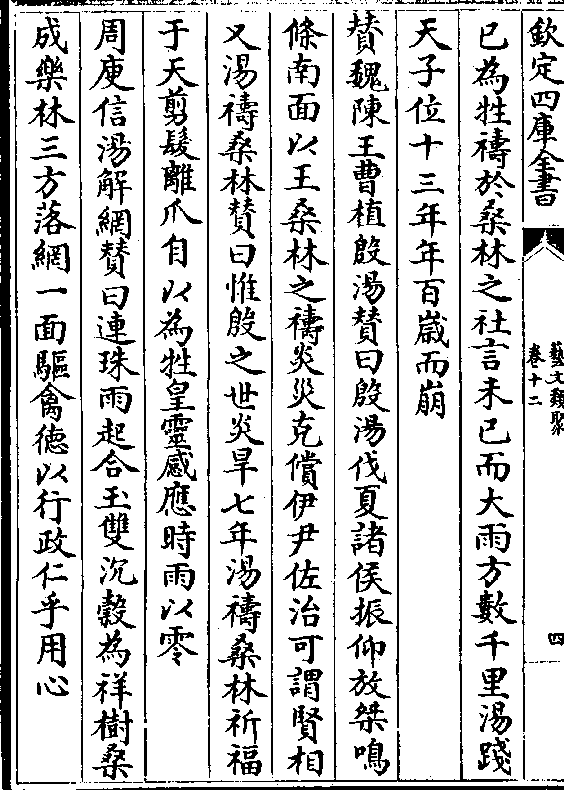 欽定四庫全書
藝文類聚
卷十二
四
已為牲禱於桑林之社言未已而大雨方數千里湯踐
天子位十三年年百歲而崩
賛魏陳王曹植殷湯賛曰殷湯伐夏諸侯振仰放桀鳴
條南面以王桑林之禱炎災克償伊尹佐治可謂賢相
又湯禱桑林賛曰惟殷之世炎旱七年湯禱桑林祈福
于天剪髮離爪自以為牲皇靈感應時雨以零
周庾信湯解網賛曰連珠雨起合玉雙沉穀為祥樹桑
成樂林三方落網一面驅禽德以行政仁乎用心